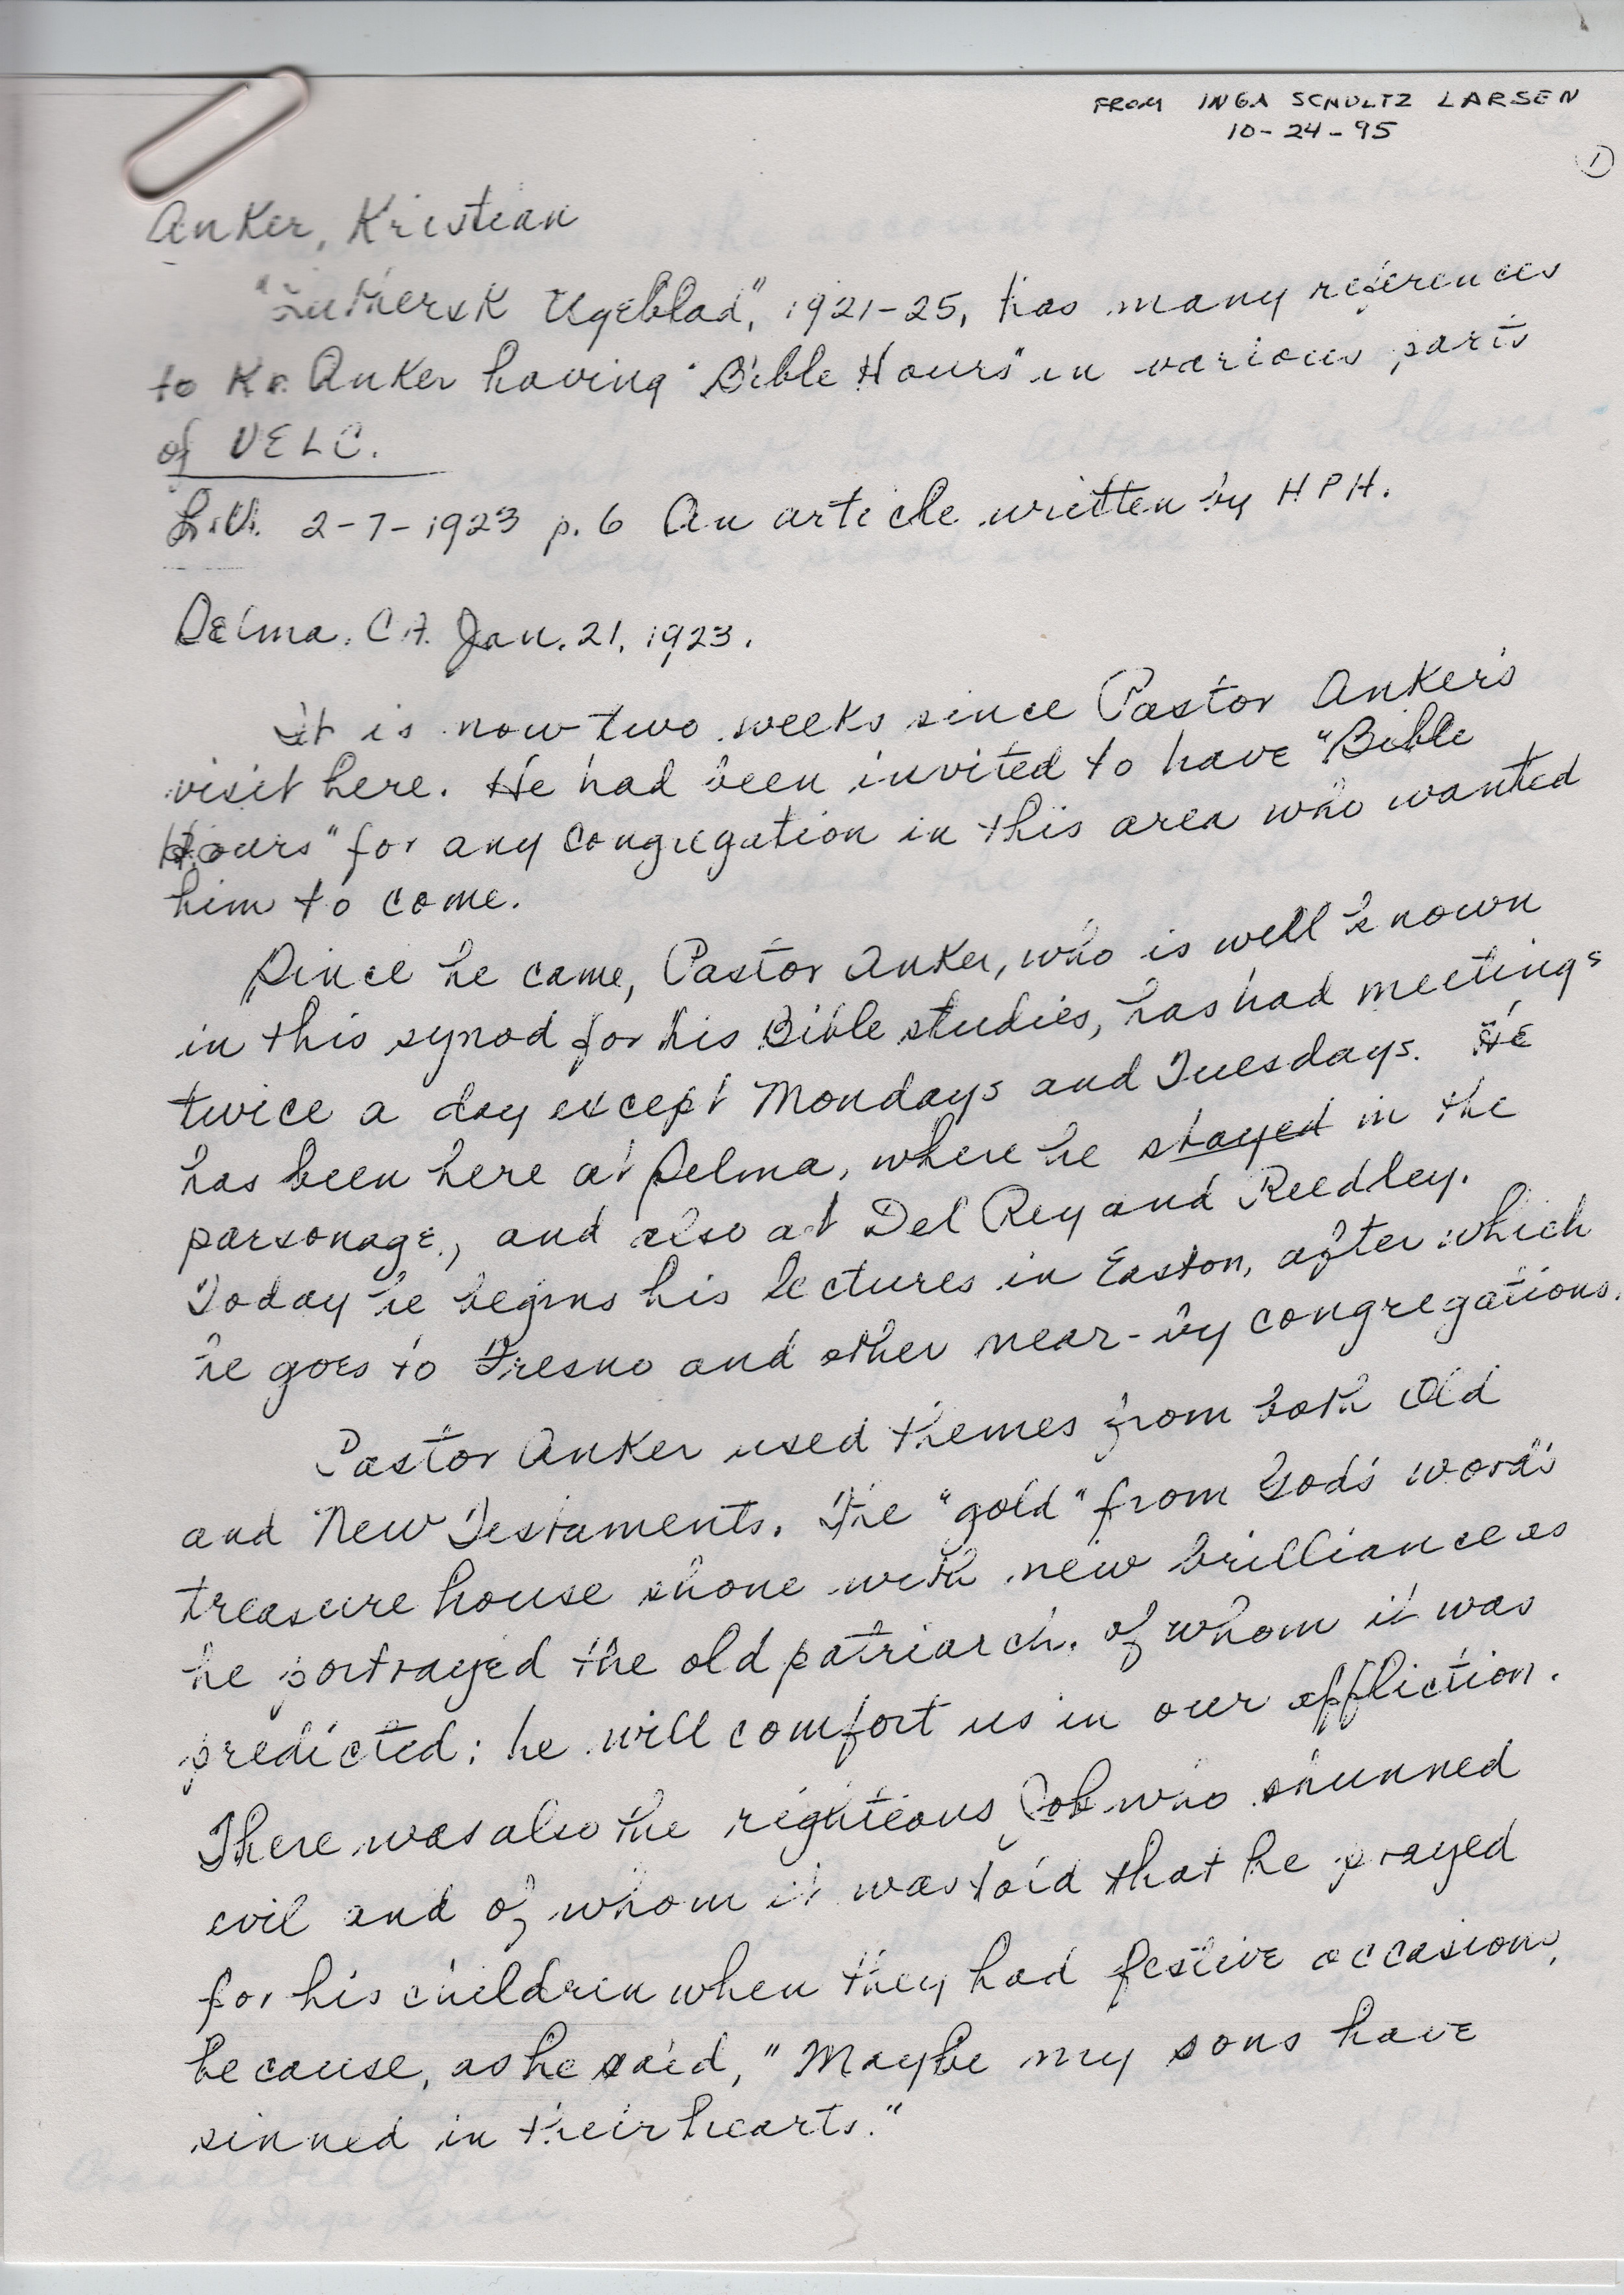 FROM INGA SCHULTZ LARSEN
10-24-95
1
Anker, Kristian
"Luthersk Ugeblad," 1921-25, has many references
to Kr. Anker having "Bible Hours" in various parts
of UELC.
L.U. 2-7-1923 p. 6 An article written by HPH.
Selma. CA. Jan. 21, 1923.
It is now two weeks since Pastor Anker's
visit here. He had been invited to have "Bible
Hours" for any congregation in this area who wanted
him to come.
Since he came, Pastor Anker, who is well known
in this synod for his Bible studies, has had meetings
twice a day except Mondays and Tuesdays. He
has been here at Selma, where he stayed in the
parsonage, and also at Del Rey and Reedley.
Today he begins his lectures in Easton, after which
he goes to Fresno and other near-by congregations.
Pastor Anker used themes from both Old
and New Testaments. The "gold" from God's word's
treasure house shone with new brilliance as
he portrayed the old patriarch, of whom it was
predicted: he will comfort us in our affliction.
There was also the righteous Job who shunned
evil and of whom it was said that he prayed
for his children when they had festive occasions,
because, as he said, "Maybe my sons have
sinned in their hearts."
by Inga Larsen.